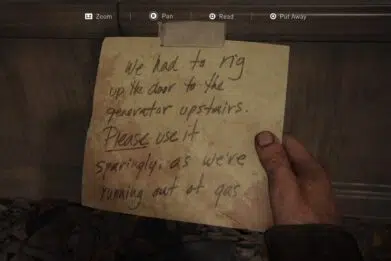 Zoom Pan Read Put Away
We had to rig
up the door to the
generator upstairs.
Please use it
sparingly, as we're
running out of gas